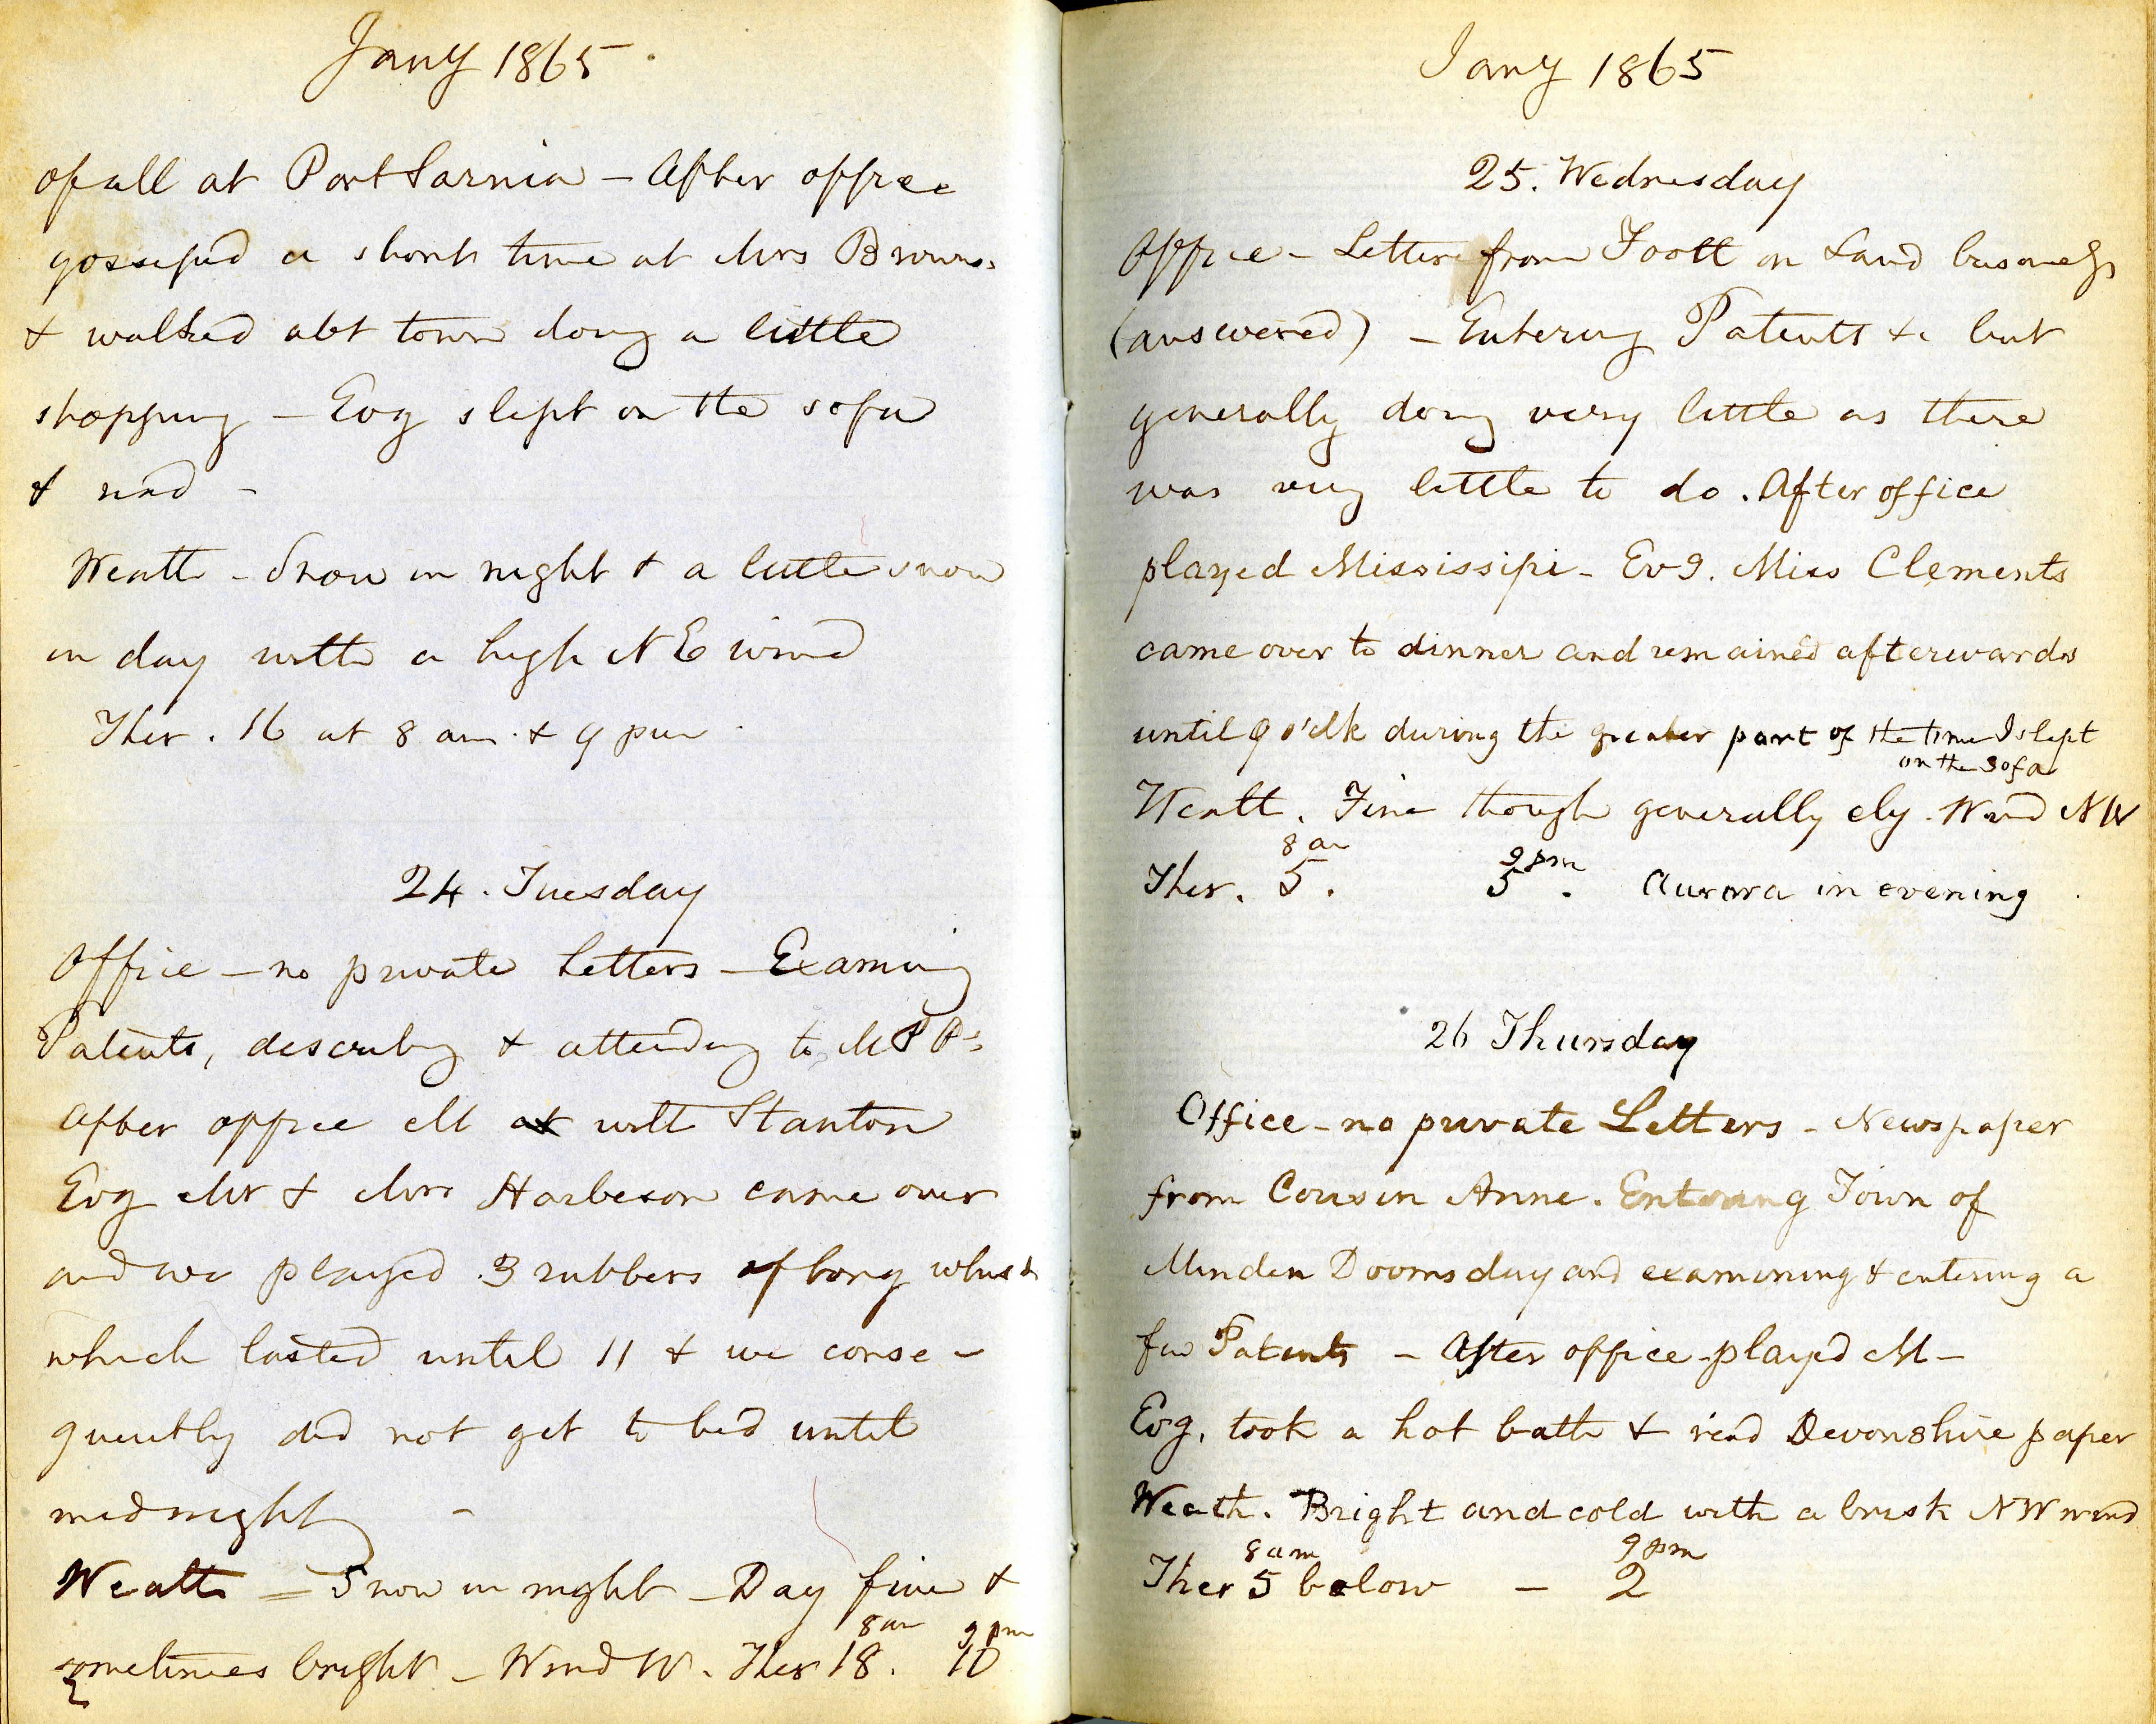 Jany 1865.
of all at Port Sarnia – After office
gossiped a short time at Mrs Browns.
& walked abt town doing a little
shopping – Evg slept on the sofa
& read –
Weath – Snow in night & a little snow
in day with a high N E wind
Ther. 16 at 8 am. & 9 pm.
24. Tuesday
Office – no private letters – Examing
Patents, describing & attending to M P Ps
After office M at with Stanton
Evg Mr & Mrs Harbeson came over
and we played 3 rubbers of long whist
which lasted until 11 & we conse–
quently did not get to bed until
midnight –
Weath = Snow in night – Day fine &
8 am 9 pm
sometimes bright – Wind W. Ther 18. 10
Jany 1865
25. Wednesday
Office – Letter from Foott on Land business
(answered) – Entering Patents &c but
generally doing very little as there
was very little to do. After office
played Mississipi – Evg. Miss Clements
came over to dinner and remained afterwards
until 9 o'clk during the greater part of the time I slept
on the sofa
Weath. Fine though generally cly. Wind N W
8 am 9 pm
Ther. 5. 5. Aurora in evening
26 Thursday
Office – no private Letters – Newspaper
from Cousin Anne. Entering Town of
Minden Doomsday and examining & entering a
few Patents – After office played M –
Evg. took a hot bath & read Devonshire paper
Weath. Bright and cold with a brisk N W wind
8 am 9 pm
Ther 5 below – 2